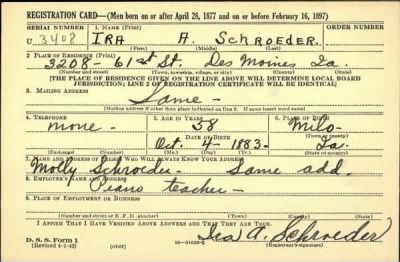 REGISTRATION CARD—(Men born on or after April 28, 1877 and on or before February 16, 1897)
SERIAL NUMBER 1. NAME (Print)
U 3408 IRA A. SCHROEDER.
(First) (Middle) (Last)
2. PLACE OF RESIDENCE (Print)
3208 - 61st St. Des Moines Ia.
(Number and street) (Town, township, village, or city) (County) (State)
[THE PLACE OF RESIDENCE GIVEN ON THE LINE ABOVE WILL DETERMINE LOCAL BOARD
JURISDICTION; LINE 2 OF REGISTRATION CERTIFICATE WILL BE IDENTICAL]
3. MAILING ADDRESS
Same -
[Mailing address if other than place indicated on line 2. If same insert word same]
4. TELEPHONE 5. AGE IN YEARS 6. PLACE OF BIRTH
none - 58 Milo -
DATE OF BIRTH (Town or county)
Oct. 4 - 1883. Ia.
(Exchange) (Number) (Mo.) (Day) (Yr.) (State or country)
7. NAME AND ADDRESS OF PERSON WHO WILL ALWAYS KNOW YOUR ADDRESS
Molly Schroeder - Same add.
8. EMPLOYER'S NAME AND ADDRESS
Piano teacher -
9. PLACE OF EMPLOYMENT OR BUSINESS
(Number and street or R. F. D. number) (Town) (County) (State)
I AFFIRM THAT I HAVE VERIFIED ABOVE ANSWERS AND THAT THEY ARE TRUE.
D. S. S. Form 1 Ira A. Schroeder
(Revised 4-1-42) (over) (Registrant's signature)